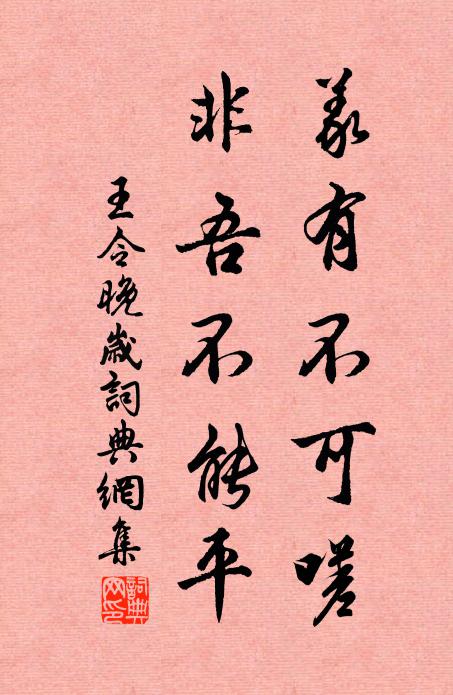 義有不可嗟
非吾不能平
王令晚歲詞典網集
詞典网印